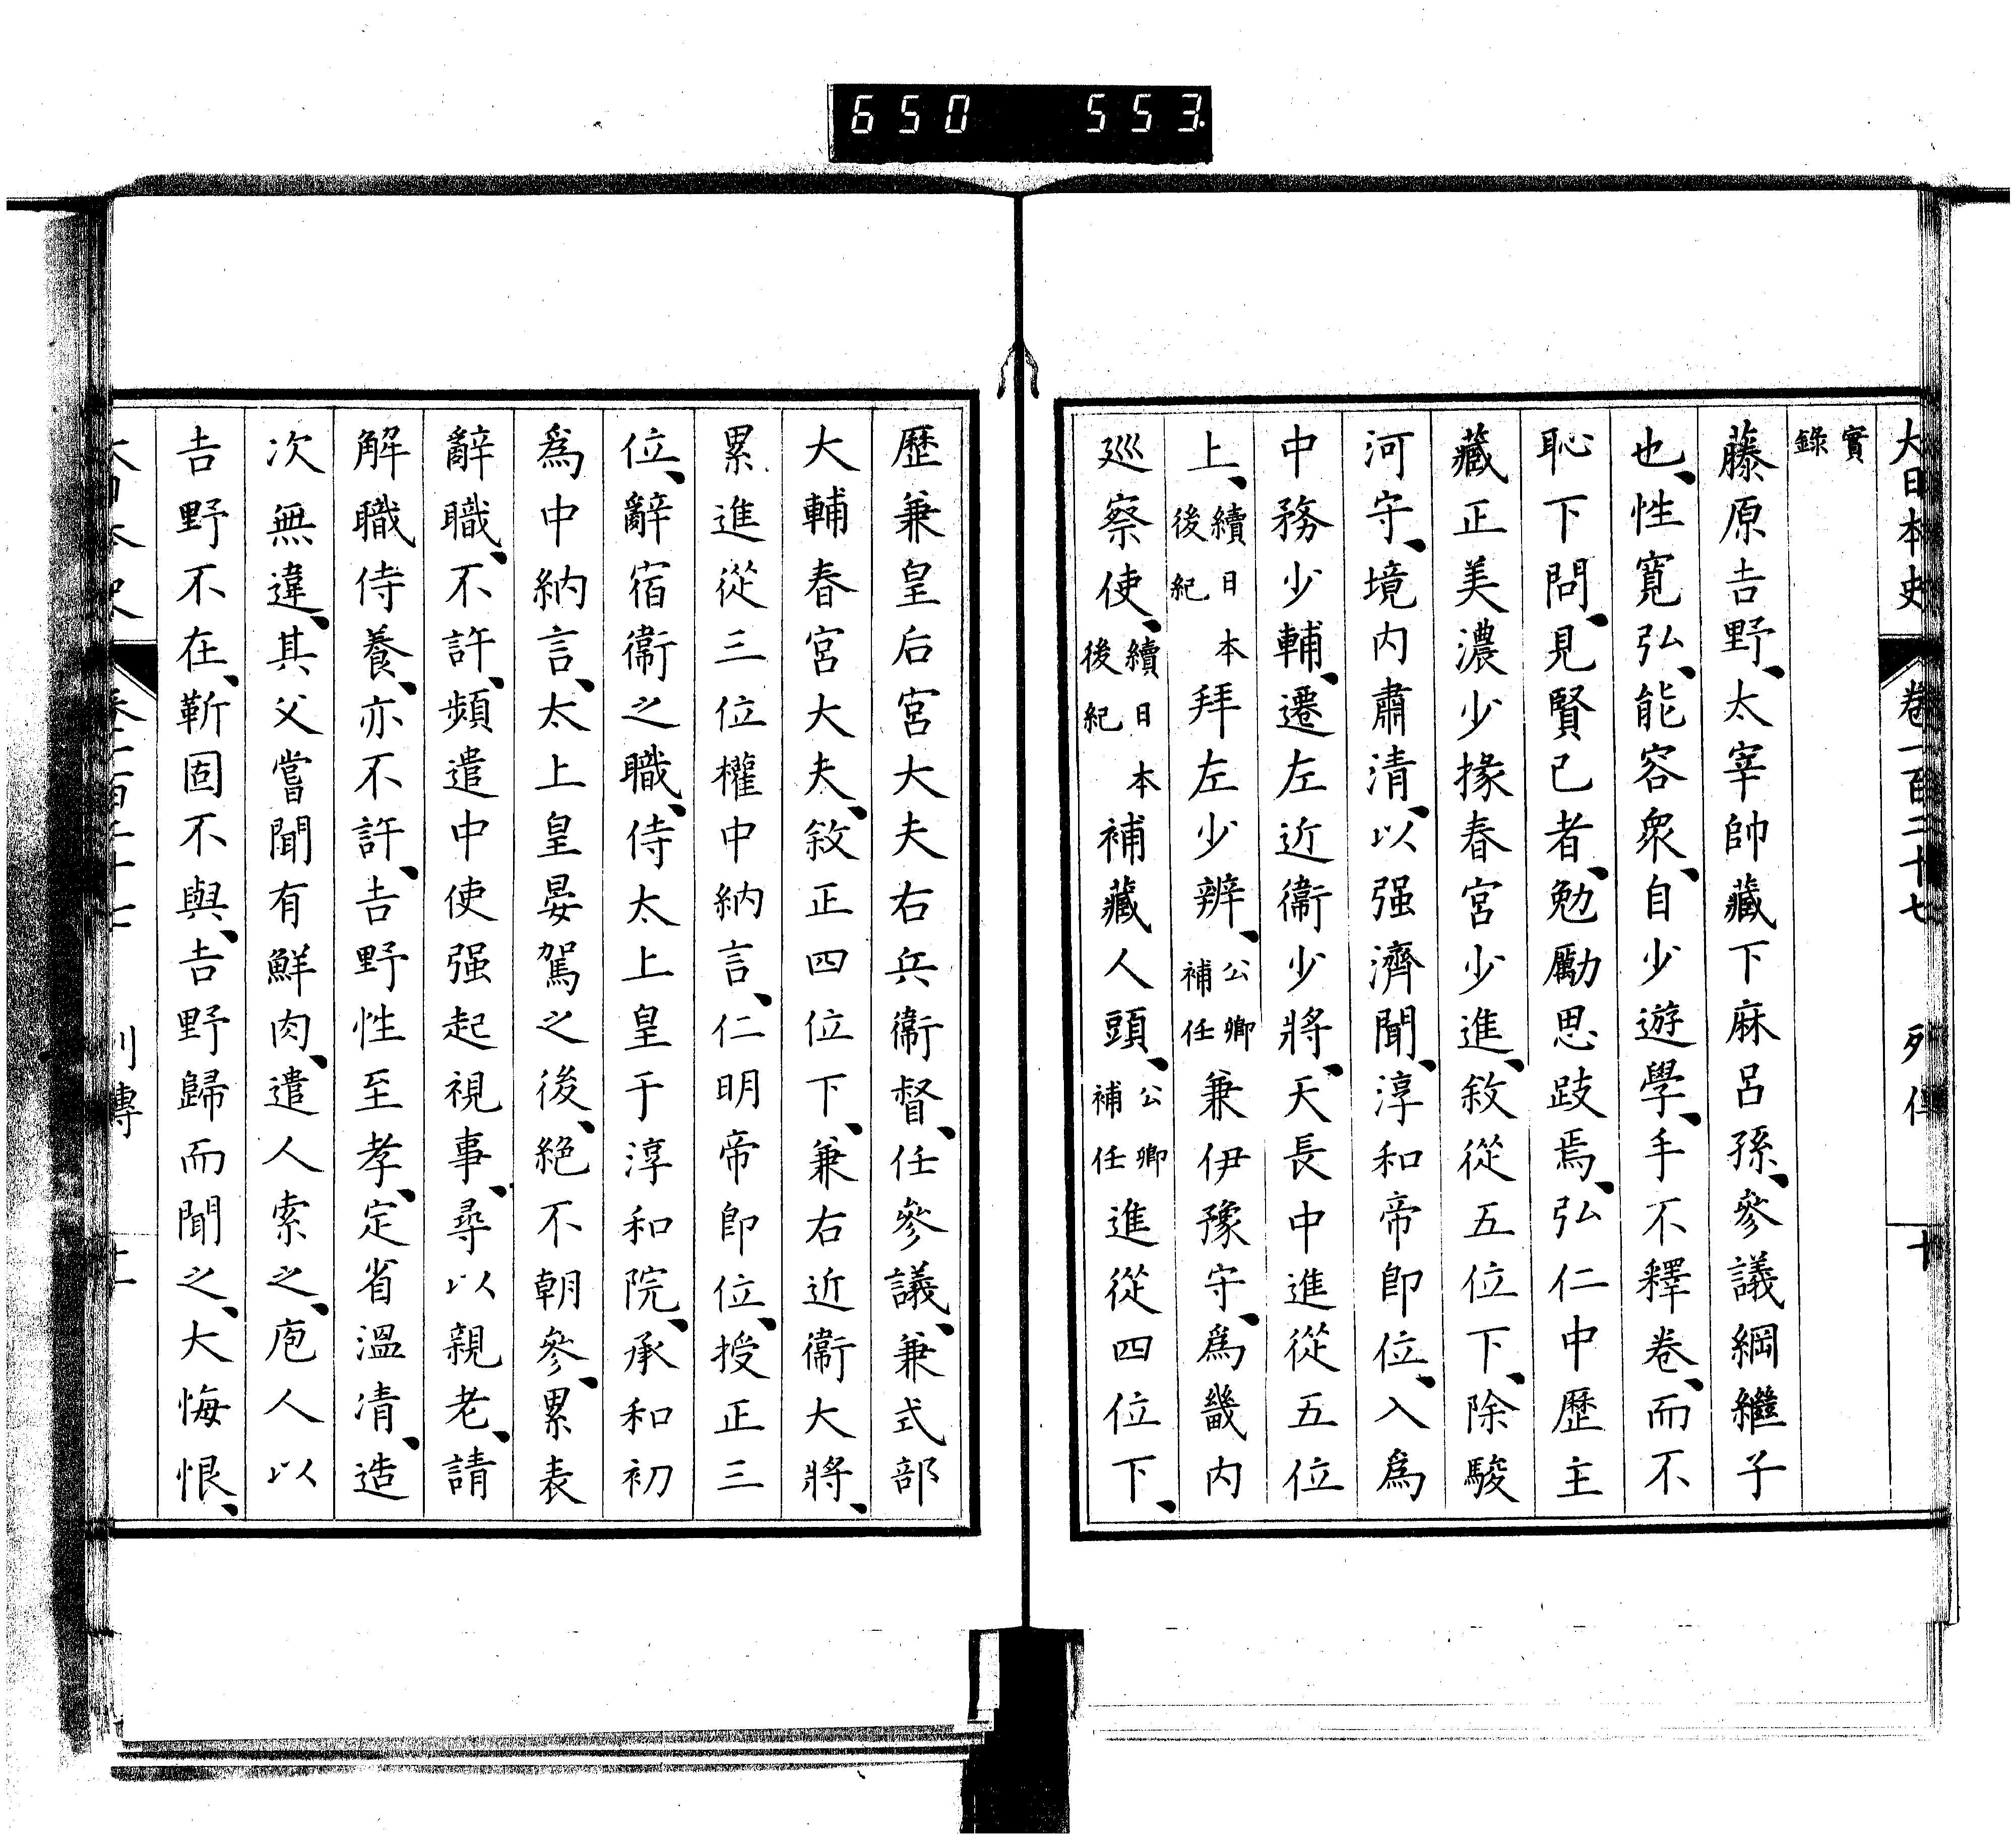 650 553
大日本史 卷一百二十七 列傳 十
實錄
藤原吉野、太宰帥藏下麻呂孫、參議綱繼子
也、性寬弘、能容衆、自少遊學、手不釋卷、而不
恥下問、見賢已者、勉勵思跂焉、弘仁中歷主
藏正美濃少掾春宮少進、敘從五位下、除駿
河守、境内肅清、以强濟聞、淳和帝卽位、入爲
中務少輔、遷左近衞少將、天長中進從五位
上、續日本後紀拜左少辨、公卿補任兼伊豫守、爲畿内
巡察使、續日本後紀補藏人頭、公卿補任進從四位下、
歷兼皇后宮大夫右兵衞督、任參議、兼式部
大輔春宮大夫、敘正四位下、兼右近衞大將、
累進從三位權中納言、仁明帝卽位、授正三
位、辭宿衞之職、侍太上皇于淳和院、承和初
爲中納言、太上皇晏駕之後、絕不朝參、累表
辭職、不許、頻遣中使强起視事、尋以親老、請
解職侍養、亦不許、吉野性至孝、定省溫凊、造
次無違、其父嘗聞有鮮肉、遣人索之、庖人以
吉野不在、靳固不與、吉野歸而聞之、大悔恨、